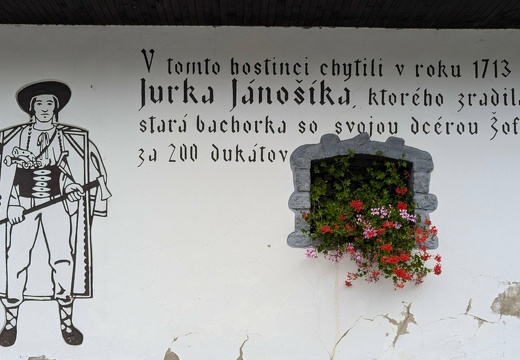 V tomto hostinci chytili v roku 1713
Jurka Jánošíka, ktorého zradila
stará bachorka so svojou dcérou Žof
za 200 dukátov